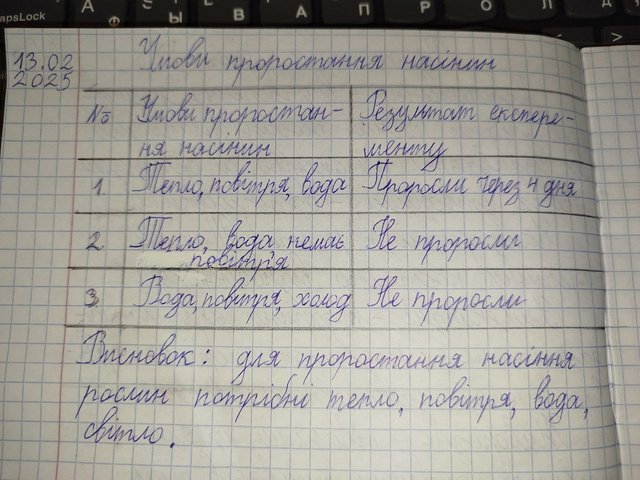 CapsLock
А Ы В А П Р О Л Д
13.02
2025
Умови проростання насінин
№ Умови проростан- Результат експере-
ня насінин менту
1. Тепло, повітря, вода Проросли через 4 дня
2 Тепло, вода немає Не проросли
повітр'я
3 Вода, повітря, холод Не проросли
Висновок: для проростання насіння
рослин потрібні тепло, повітря, вода,
світло.